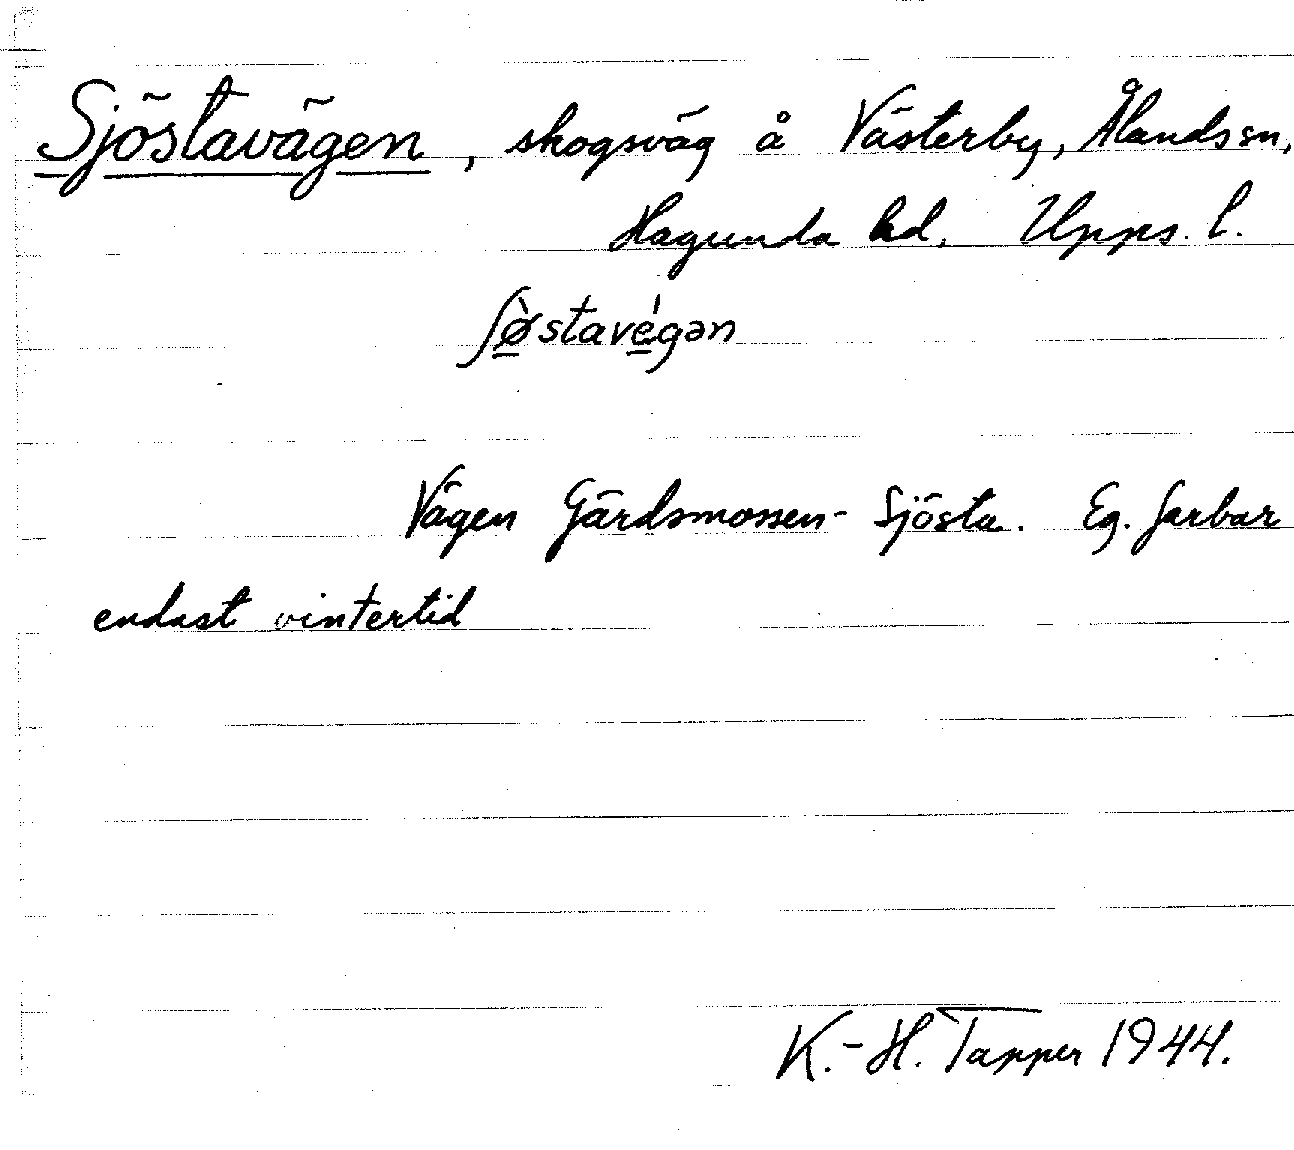 Sjöstavägen, skogsväg å Västerby, Ålands sn,
Hagunda hd. Upps. l.
ʃø̠̀stavé̠gən
Vägen Gärdsmossen - Sjösta. Eg. farbar
endast vintertid
K.-H. Tapper 1944.